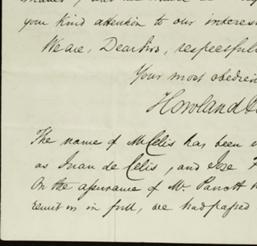 you kind attention to our interes
We are, Dear Sirs, respectfull
Your most obedien
Howland &
The name of McCelis has been
as Juan de Celis, and Jose
On the assurance of Mr. Parrott
remit us in full, we had passed